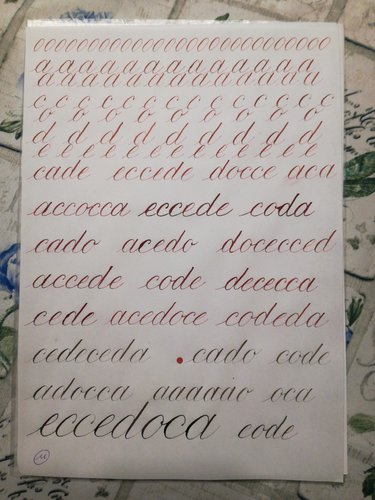 ooooooooooooooooooooooooooo
a a a a a a a a a a a a
a a a a a a a a a a a a a
c c c c c c c c c c c c c
o o o o o o o
d d d d d d d d d
e e e e e e e e e e e e e
cade eccede docce aca
accocca eccede coda
cado acedo docecced
accede code dececca
cede acedoce codeda
cedeceda cado code
adocca aaaaao oca
eccedoca code